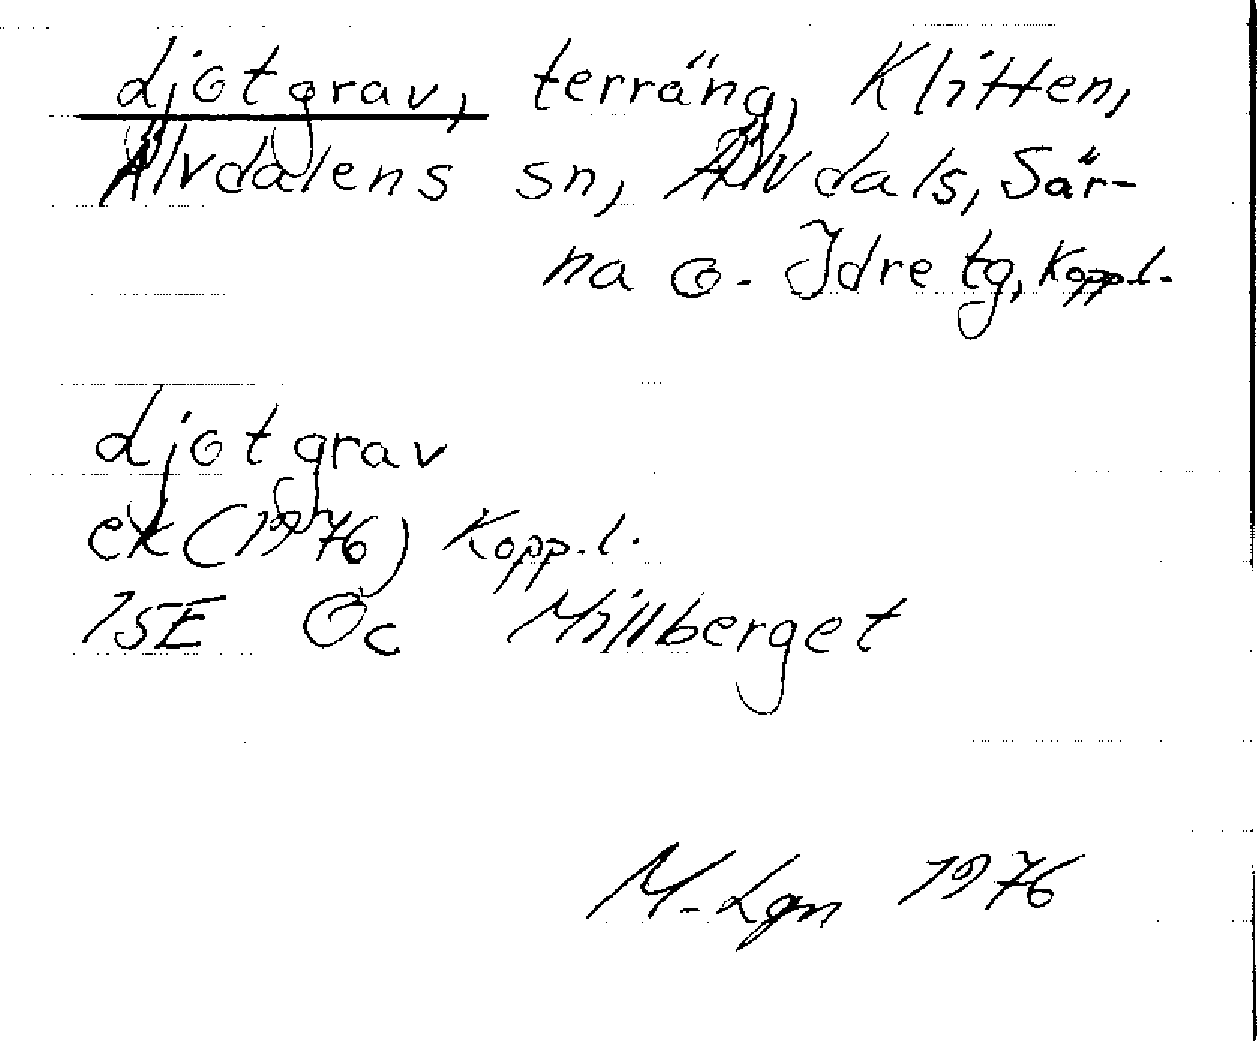 djotgrav, terräng, Klitten,
Älvdalens sn, Älvdals, Sär-
na o. Idre tg, Kopp.l.
djotgrav
ek (1976) Kopp.l.
15E Oc Millberget
M. Lgn 1976